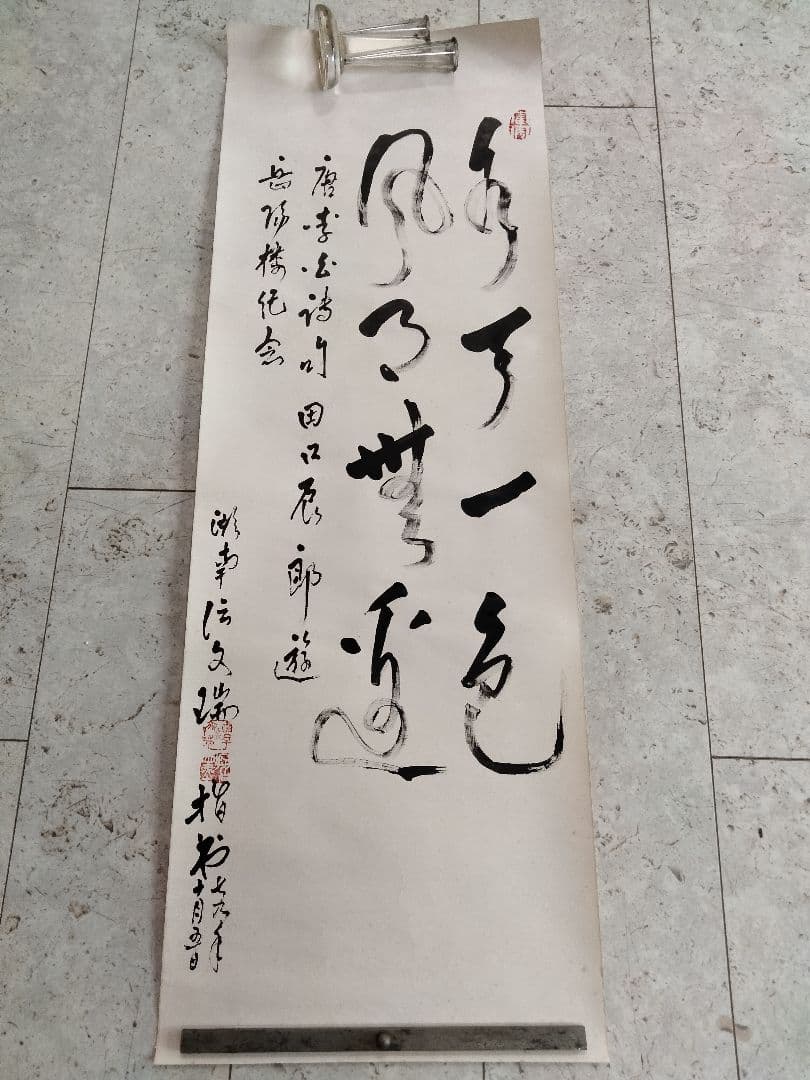 水天一色
风月無邊
唐李白詩句 田口辰郎遊
岳陽楼纪念
湖南 文瑞 指书
七九年
十月五日